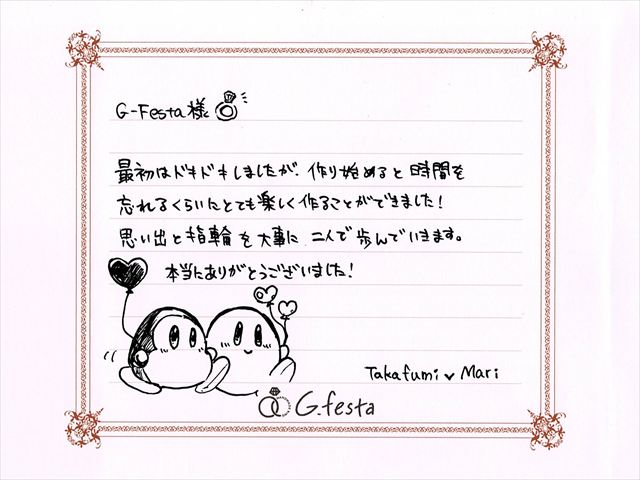 G-Festa様
最初はドキドキしましたが、作り始めると時間を
忘れるくらいとても楽しく作ることができました!
思い出と指輪を大事に、二人で歩んでいきます。
本当にありがとうございました!
Takafumi ♥ Mari
G.festa